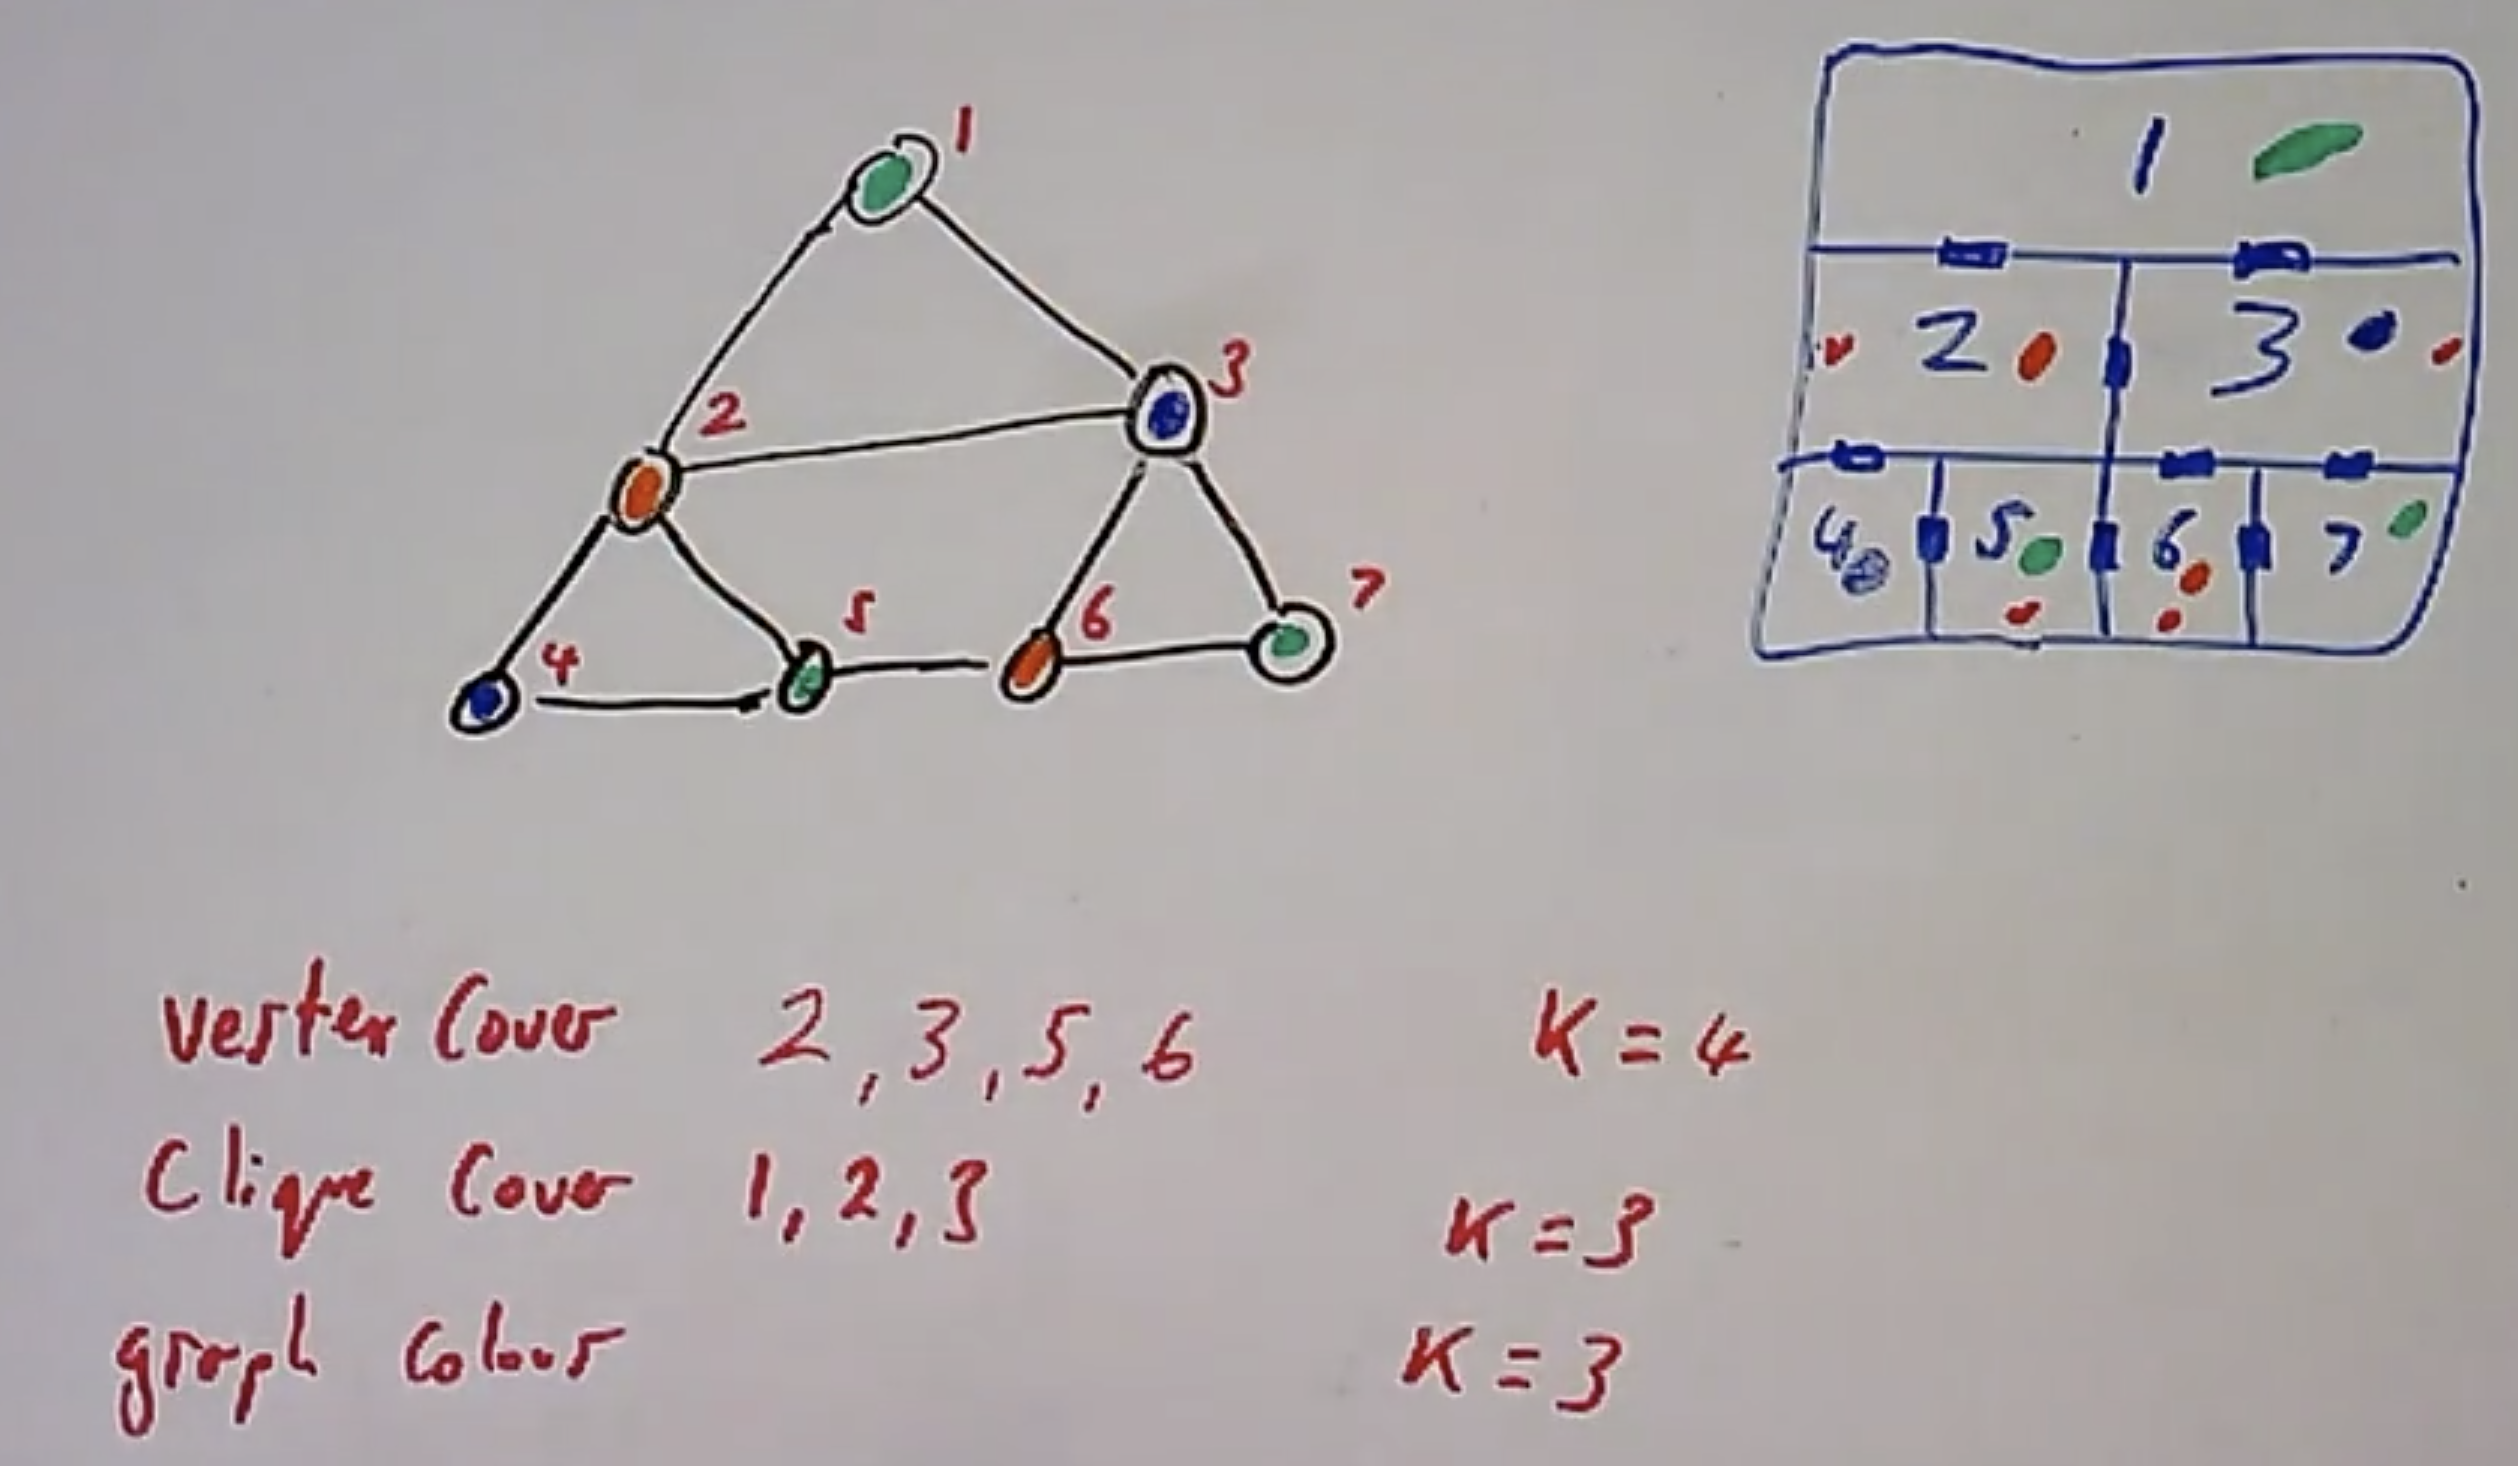 1
3
2
5
7
6
4
1
2 3
4 5 6 7
Vertex Cover 2, 3, 5, 6 K = 4
Clique Cover 1, 2, 3 K = 3
graph colour K = 3